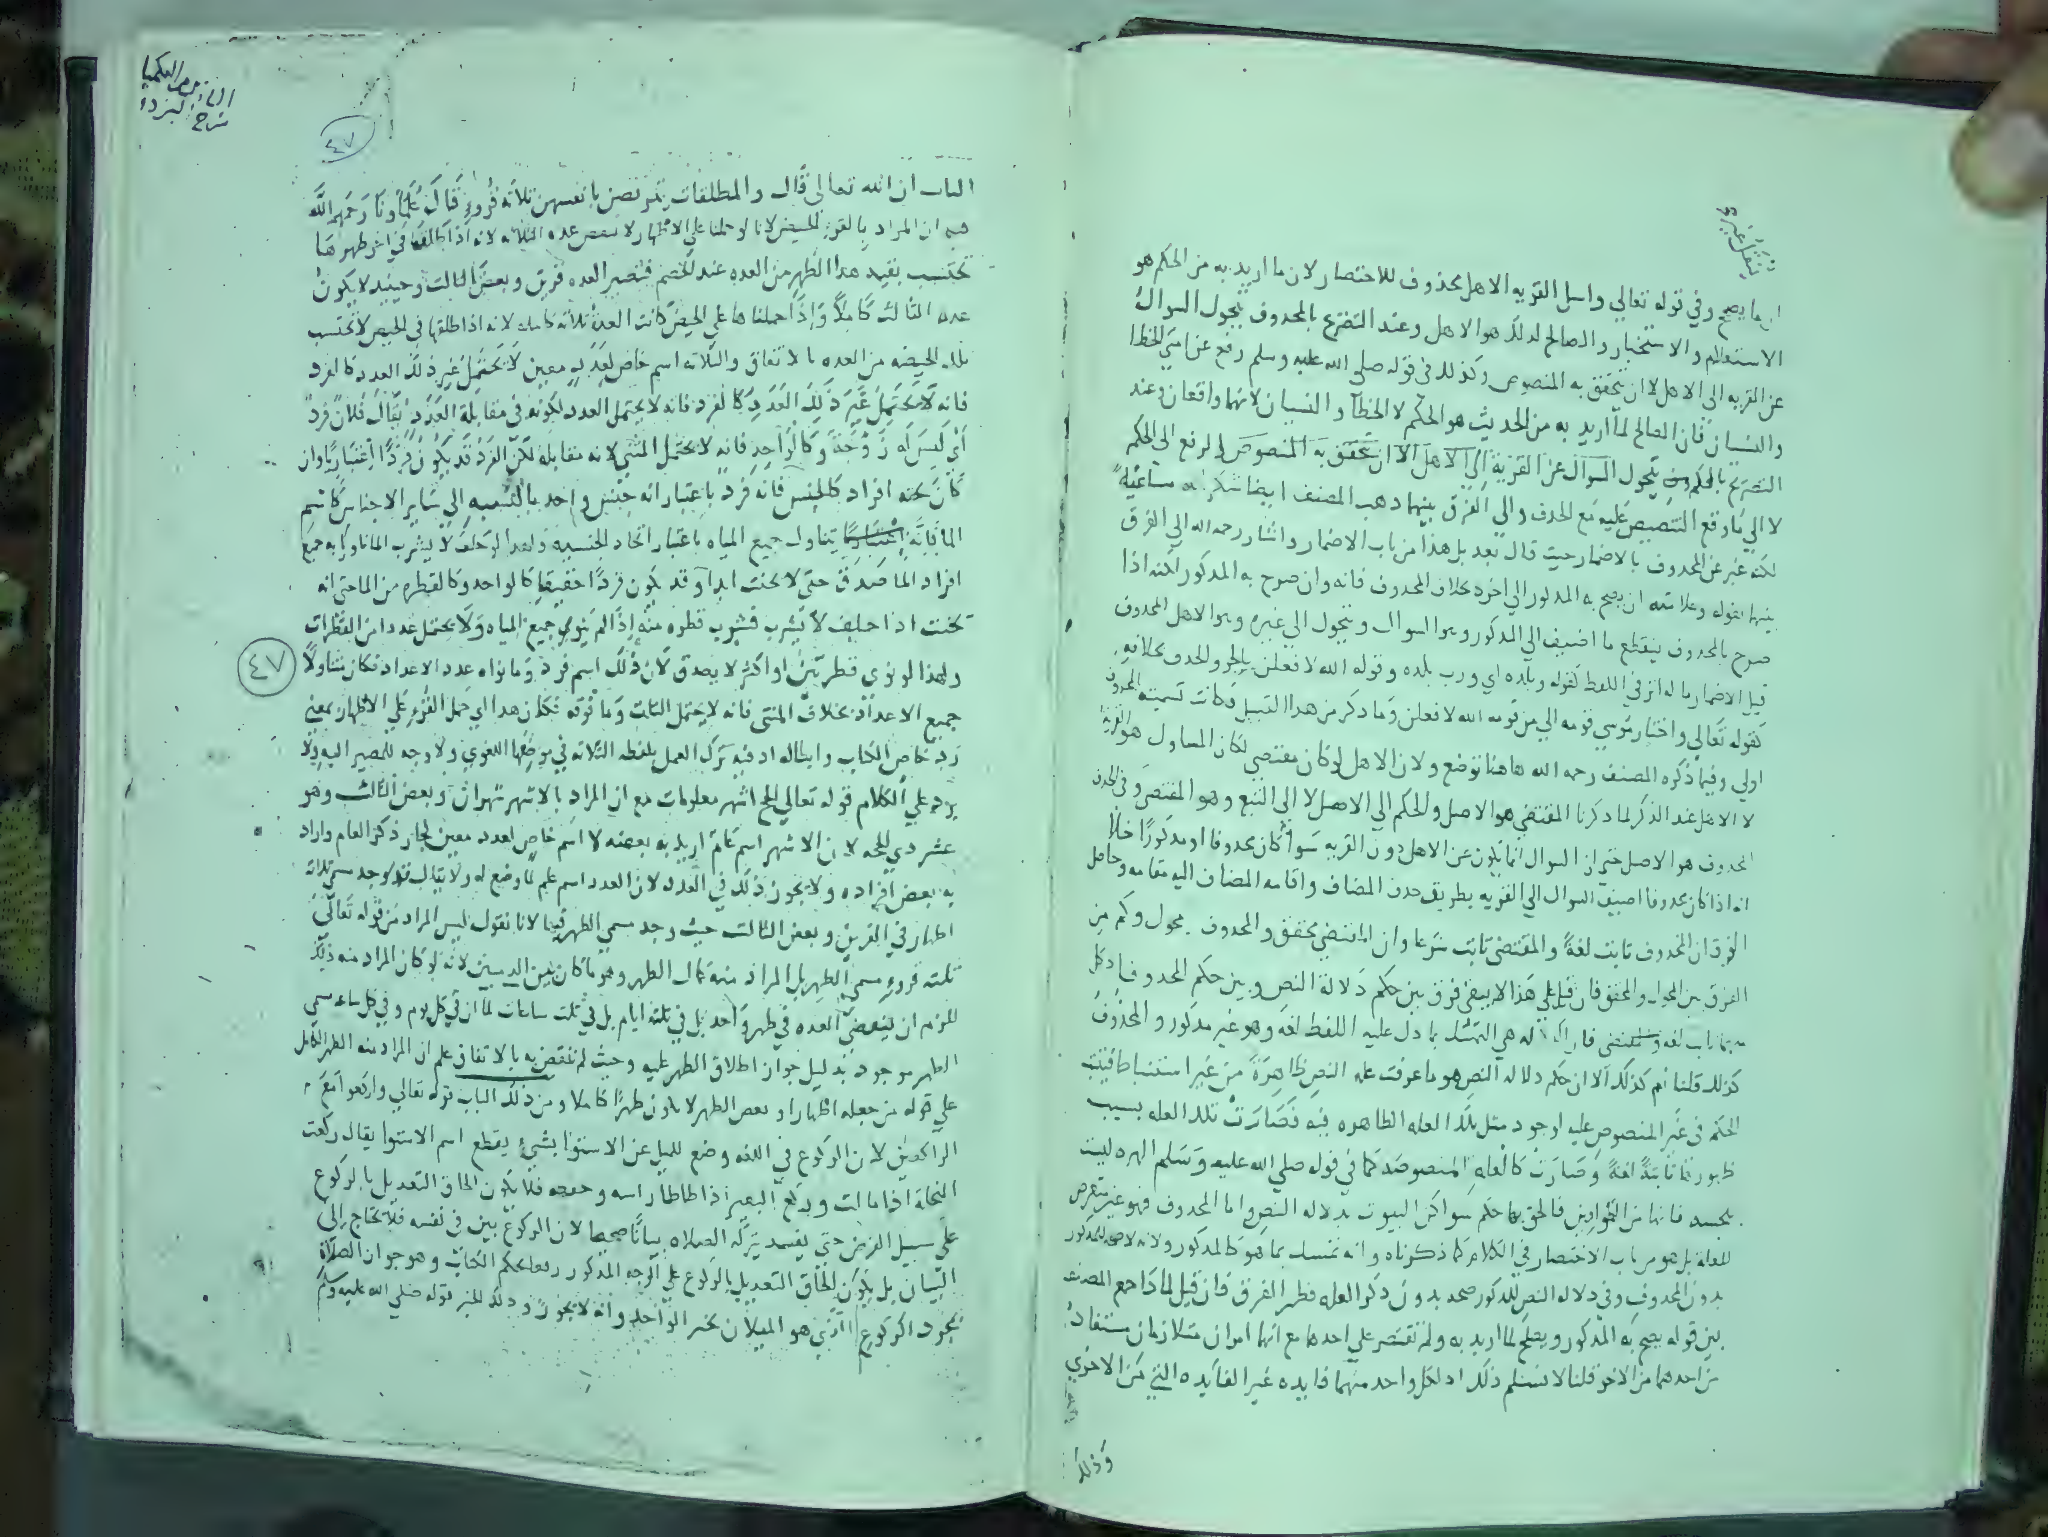 ينتقل غيره
انما يصح وفي قوله تعالى واسل القريه الاهل محذوف للاختصار لان ما اريد به من الحكم هو
الاستعلام والاستخبار والصالح لذلك هو الاهل وعند التصريح بالمحذوف يتحول السوال
عن القريه الي الاهل لا ان يتحقق به المنصوص وكذلك في قوله صلى الله عليه وسلم رفع عن امتي الخطا
والنسيان فان الصالح لما اريد به من الحديث هو الحكم لا الخطا والنسيان لانهما واقعان وعند
التصريح بالحكم يتحول السوال عن القرية الي الاهل الا ان يتحقق به المنصوص اي الرفع الى الحكم
لا الي ما وقع التنصيص عليه مع الحذف والي الفرق بينهما ذهب المصنف ايضا شكر الله مساعيه
لكنه عبر عن المحذوف بالاضمار حيث قال بعد بل هذا من باب الاضمار واشار رحمه الله الي الفرق
بينهما بقوله وعلامته ان يصح به المذكور الي اخره بخلاف المحذوف فانه وان صرح به المذكور لكنه اذا
صرح بالمحذوف ينقطع ما اضيف الي المذكور وهو السوال ويتحول الي غيره وهو الاهل المحذوف
قيل الاضمار ما له اثر في اللفظ كقوله وبلده اي ورب بلده وقوله الله لافعلن بالجر والحذف بخلافه
كقوله تعالي واختار موسي قومه اي من قومه الله لافعلن وما ذكر من هذا القبيل فكانت تسميته المحذوف
اولي وفيما ذكره المصنف رحمه الله هاهنا توضع ولان الاهل لو كان مقتضي لكان المساول هو القرية
لا الاهل عند الذكر لما ذكرنا المقتضي هو الاصل والحكم الي الاصل لا الي التبع وهو المقتضى وفي الحذف
المحذوف هو الاصل حتى ان السوال انما يكون عن الاهل دون القريه سوا كان محذوفا او مذكورا خلا
انه اذا كان محذوفا اضيف السوال الي القريه بطريق حذف المضاف واقامه المضاف اليه مقامه وحاصل
الفرق ان المحذوف ثابت لغة والمقتضى ثابت شرعا وان المقتضى يحقق والمحذوف يحول وكم من
الفرق بين المحول والمحقق فان قيل علي هذا لا يبقي فرق بين حكم دلالة النص وبين حكم المحذوف اذ كل
منهما ثابت لغه هي التمسك بما دل عليه اللفظ لغة وهو غير مذكور والمحذوف
كذلك قلنا نعم كذلك الا ان حكم دلاله النص هو ما عرفت علة النص ظاهرة من غير استنباط فيثبت
الحكم في غير المنصوص عليه لوجود مثل تلك العله الظاهره فيه فصارت تلك العله بسبب
ظهورها ثابتة لغة وصارت كالعله المنصوصه كما في قوله صلي الله عليه وسلم الهره ليست
بنجسه فانها من الطوافين فالحق بها حكم سواكن البيوت بدلاله النص واما المحذوف فهو غير متعرض
للعلة بل هو من باب الاختصار في الكلام كما ذكرناه وانه تمسك بما هو كالمذكور ولانه لا صحه للمذكور
بدون المحذوف وفي دلاله النص للمذكور صحه بدون ذكر العله فظهر الفرق فان قيل لماذا جمع المصنف
بين قوله يصح به المذكور ويصلح لما اريد به ولم يقتصر علي احدهما مع انهما امران متلازمان مستفاد
من احدهما من الاخر قلنا لا نسلم ذلك اذ لكل واحد منهما فايده غير الفايده التي من الاخري
وذلك
شرح البزدوي
٤٧
الباب ان الله تعالى قال والمطلقات يتربصن بانفسهن ثلاثة قروء قال علماونا رحمهم الله
ان المراد بالقرء الحيض لانا لو حملنا علي الاطهار لانتقص عدد الثلاثه لانه اذا طلقها في اخر طهرها
تحتسب بقيه هذا الطهر من العده عند الخصم فتصير العده قرين وبعض الثالث وحينيذ لا يكون
عدد الثالث كاملا واذا حملناها علي الحيض كانت العدة ثلاثه كامله لانه اذا طلقها في الحيض لا تحتسب
تلك الحيضه من العده بالاتفاق والثلاثه اسم خاص لعدد معين لا يحتمل غير ذلك العدد كالفرد
فانه لا يحتمل غير ذلك العدد كالفرد فانه لا يحتمل العدد لكونه في مقابلة العدد يقال فلان فرد
اي ليس له زوجة وكالواحد فانه لا يحتمل المثني لانه مقابله لكن الفرد قد يكون فردا اعتباريا وان
كان تحته افراد كالجنس فانه فرد باعتبار انه جنس واحد بالنسبه الي ساير الاجناس كاسم
الما فانه يتناول جميع المياه باعتبار اتحاد الجنسيه ولهذا لو حلف لا يشرب الما ناويا به جميع
افراد الما صدق حتى لا يحنث ابدا وقد يكون فردا حقيقيا كالواحد وكالقطره من الما حتى انه
يحنث اذا حلف لا يشرب فشرب قطره منه اذا لم ينوي جميع المياه ولا يحتمل عددا من القطرات
٤٧
ولهذا لو نوي قطرتين او اكثر لا يصدق لان ذلك اسم فرد وما نواه عدد الاعداد فكان متناولا
جميع الاعداد بخلاف المثنى فانه لا يحتمل الثالث وما فوقه فكان هذا اي حمل القرء علي الاطهار بمعني
رد خاص الكتاب وابطاله اذ فيه ترك العمل بلفظه الثلاثه في موضعها اللغوي ولا وجه للمصير اليه ولا
يرد علي الكلام قوله تعالي الحج اشهر معلومات مع ان المراد بالاشهر شهران وبعض الثالث وهو
عشر ذي الحجه لان الاشهر اسم عام اريد به بعضه لا اسم خاص لعدد معين لجاز ذكر العام واراد
به بعض افراده ولا يجوز ذلك في العدد لان العدد اسم علم لما وضع له ولا يقال قد وجد مسمي ثلاثه
اطهار في القرين وبعض الثالث حيث وجد مسمي الطهر فيها لانا نقول ليس المراد من قوله تعالى
ثلثه قروء مسمي الطهر بل المراد منه كمال الطهر وهو ما كان بين الدمين لانه لو كان المراد منه ذلك
للزم ان ينقضي العده في طهر واحد بل في ثلثه ايام بل في ثلث ساعات لما ان في كل يوم وفي كل ساعه مسمي
الطهر موجود بدليل جواز اطلاق الطهر عليه وحيث لم تنقض به بالاتفاق علم ان المراد منه الطهر الكامل
علي قوله من جعله اطهارا وبعض الطهر لا يكون طهرا كاملا ومن ذلك الباب قوله تعالي واركعوا مع
الراكعين لان الركوع في اللغه وضع للميل عن الاستوا بشيء يقطع اسم الاستوا يقال ركعت
النخلة اذا مالت وركع البعير اذا طاطا راسه وخفضه فلا يكون الحاق التعديل بالركوع
علي سبيل الفرض حتي يفسد بتركه الصلاه بيانا صحيحا لان الركوع بين في نفسه فلا يحتاج الي
البيان بل يكون الحاق التعديل بالركوع علي الوجه المذكور رفعا لحكم الكتاب وهو جواز الصلاة
بوجود الركوع الذي هو الميلان بخبر الواحد وانه لا يجوز وذلك الخبر قوله صلي الله عليه وسلم